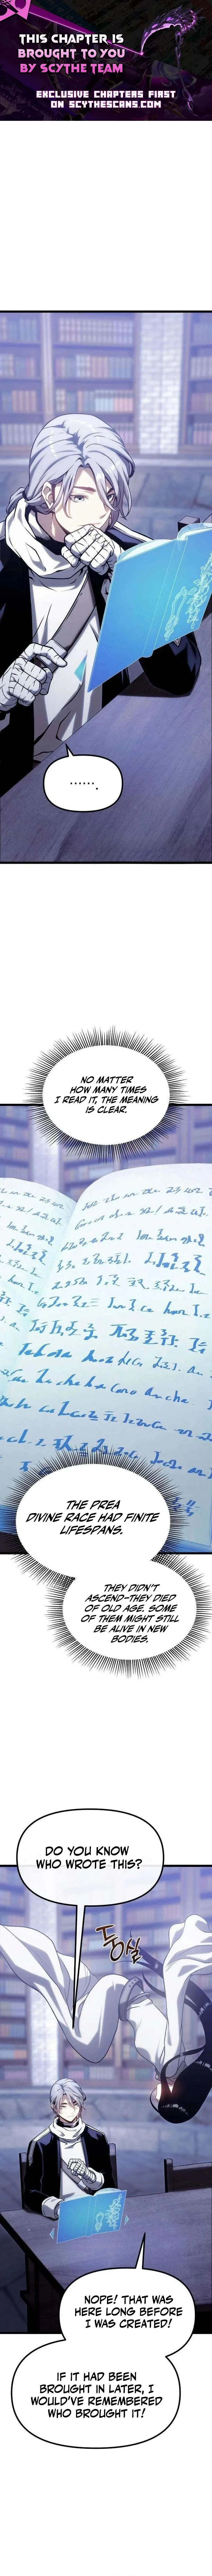 THIS CHAPTER IS
BROUGHT TO YOU
BY SCYTHE TEAM
EXCLUSIVE CHAPTERS FIRST
ON SCYTHESCANS.COM
.......
NO MATTER
HOW MANY TIMES
I READ IT, THE MEANING
IS CLEAR.
THE PREA
DIVINE RACE HAD FINITE
LIFESPANS.
THEY DIDN'T
ASCEND-THEY DIED
OF OLD AGE. SOME
OF THEM MIGHT STILL
BE ALIVE IN NEW
BODIES.
DO YOU KNOW
WHO WROTE THIS?
둥실
NOPE! THAT WAS
HERE LONG BEFORE
I WAS CREATED!
IF IT HAD BEEN
BROUGHT IN LATER, I
WOULD'VE REMEMBERED
WHO BROUGHT IT!